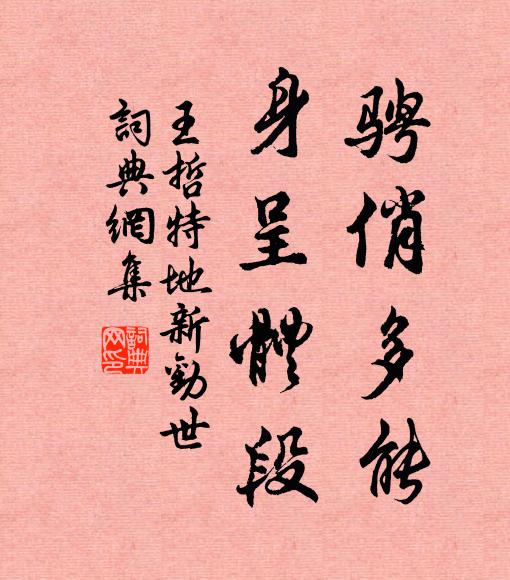 騁俏多能
身呈體段
王哲特地新勸世
詞典網集
詞典
网印